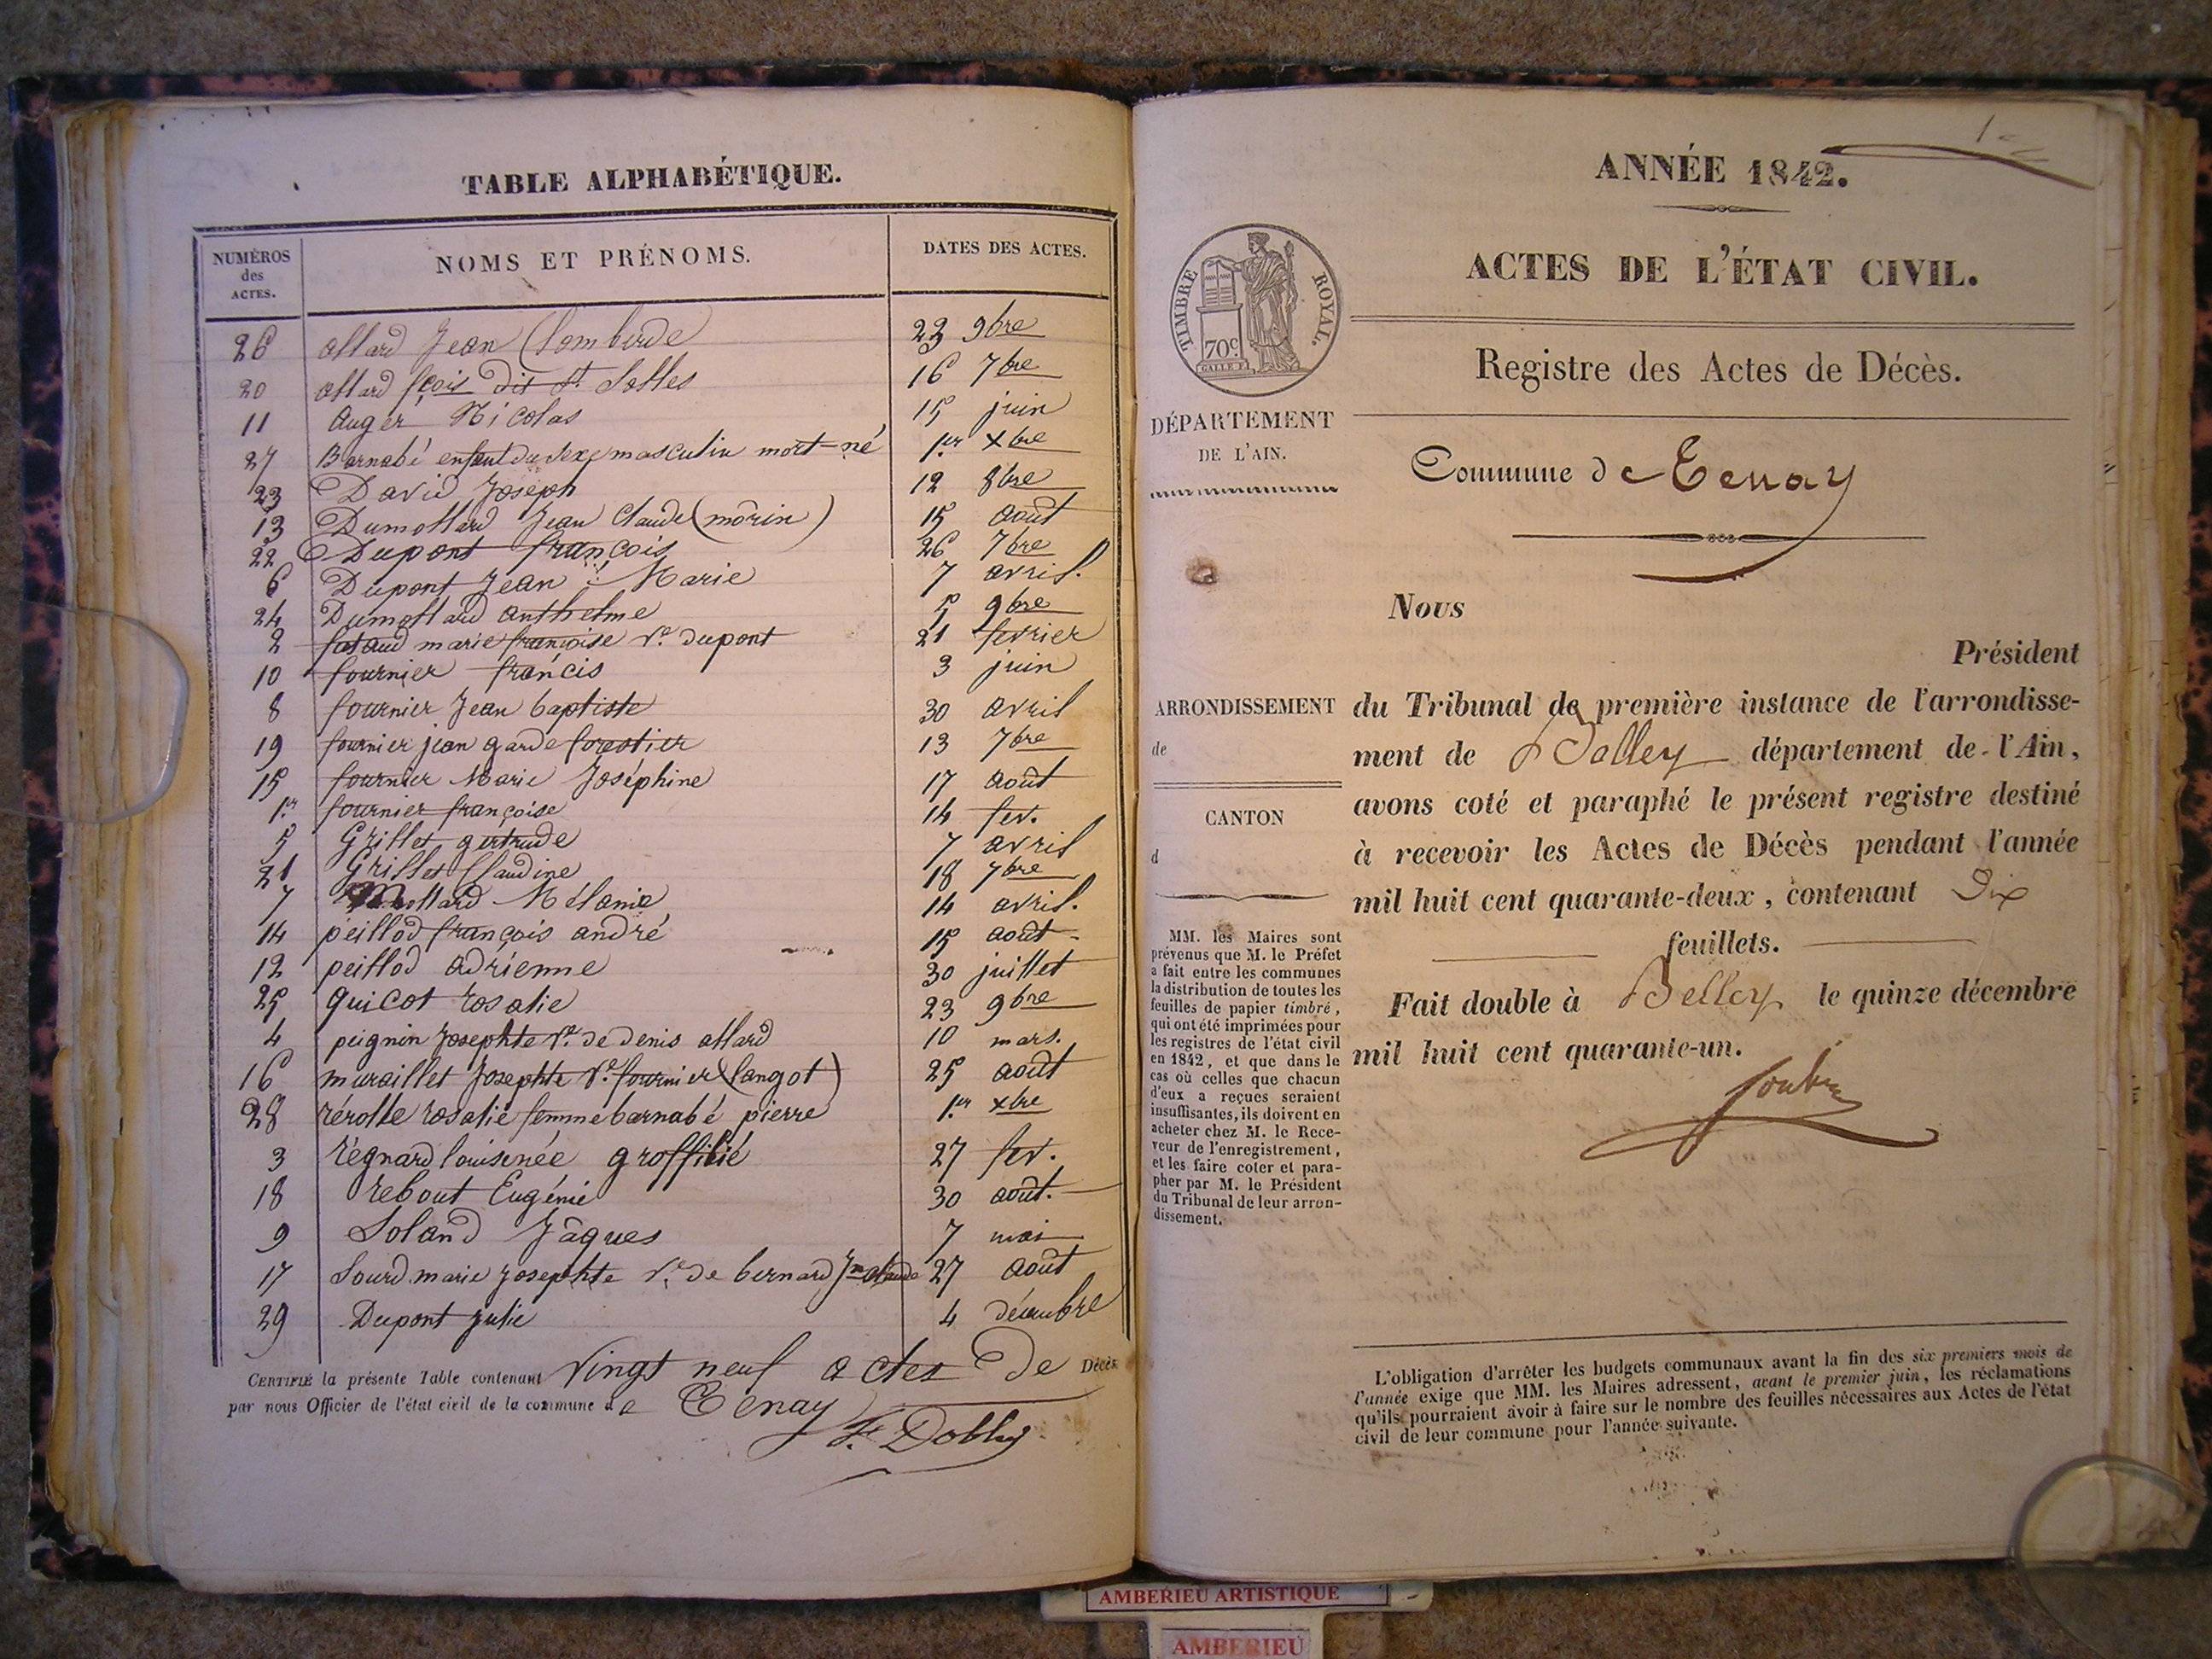 TABLE ALPHABÉTIQUE.
NUMÉROS des ACTES. NOMS ET PRÉNOMS. DATES DES ACTES.
26 allard Jean 23 9bre
20 allard fçois dit St Salles 16 7bre
11 Auger Nicolas 15 juin
27 Barnabé enfant du sexe masculin mort-né 1.er xbre
23 David Joseph 12 8bre
13 Dumollard Jean Claude (morin) 15 août
22 Dupont françois 26 7bre
6 Dupont Jean Marie 7 avril.
24 Dumollard anthelme 5 9bre
2 marie françoise Ve. dupont 21 fevrier
10 fournier francis 3 juin
8 fournier Jean baptiste 30 avril
19 fournier jean garde forestier 13 7bre
15 fournier Marie Joséphine 17 août
1.er fournier françoise 14 fev.
5 Grillet gertrude 7 avril
21 Grillet Claudine 18 7bre
7 Mollard Mélanie 14 avril.
14 peillod françois andré 15 août
12 peillod adrienne 30 juillet
25 quicot rosalie 23 9bre
4 peignin Josephte Ve. de denis allard 10 mars.
16 muraillet Josephte Ve. fournier (langot) 25 août
28 rérolle rosalie femme barnabé pierre 1.er xbre
3 régnard louise née groffilié 27 fev.
18 rebout Eugénie 30 août.
9 Soland Jâques 7 mai
17 Sourd marie josephte Ve. de bernard Jn claude 27 août
29 Dupont julie 4 décembre
CERTIFIÉ la présente Table contenant Vingt neuf actes de Décès
par nous Officier de l'état civil de la commune de Tenay
ANNÉE 1842.
ACTES DE L'ÉTAT CIVIL.
TIMBRE ROYAL.
70c.
Registre des Actes de Décès.
DÉPARTEMENT
DE L'AIN.
Commune de Tenay
Nous
Président
ARRONDISSEMENT
de
CANTON
d
du Tribunal de première instance de l'arrondisse-
ment de Belley département de l'Ain,
avons coté et paraphé le présent registre destiné
à recevoir les Actes de Décès pendant l'année
mil huit cent quarante-deux, contenant Dix
feuillets.
Fait double à Belley le quinze décembre
mil huit cent quarante-un.
MM. les Maires sont
prévenus que M. le Préfet
a fait entre les communes
la distribution de toutes les
feuilles de papier timbré,
qui ont été imprimées pour
les registres de l'état civil
en 1842, et que dans le
cas où celles que chacun
d'eux a reçues seraient
insuffisantes, ils doivent en
acheter chez M. le Rece-
veur de l'enregistrement,
et les faire coter et para-
pher par M. le Président
du Tribunal de leur arron-
dissement.
L'obligation d'arrêter les budgets communaux avant la fin des six premiers mois de
l'année exige que MM. les Maires adressent, avant le premier juin, les réclamations
qu'ils pourraient avoir à faire sur le nombre des feuilles nécessaires aux Actes de l'état
civil de leur commune pour l'année suivante.
AMBERIEU ARTISTIQUE
AMBERIEU